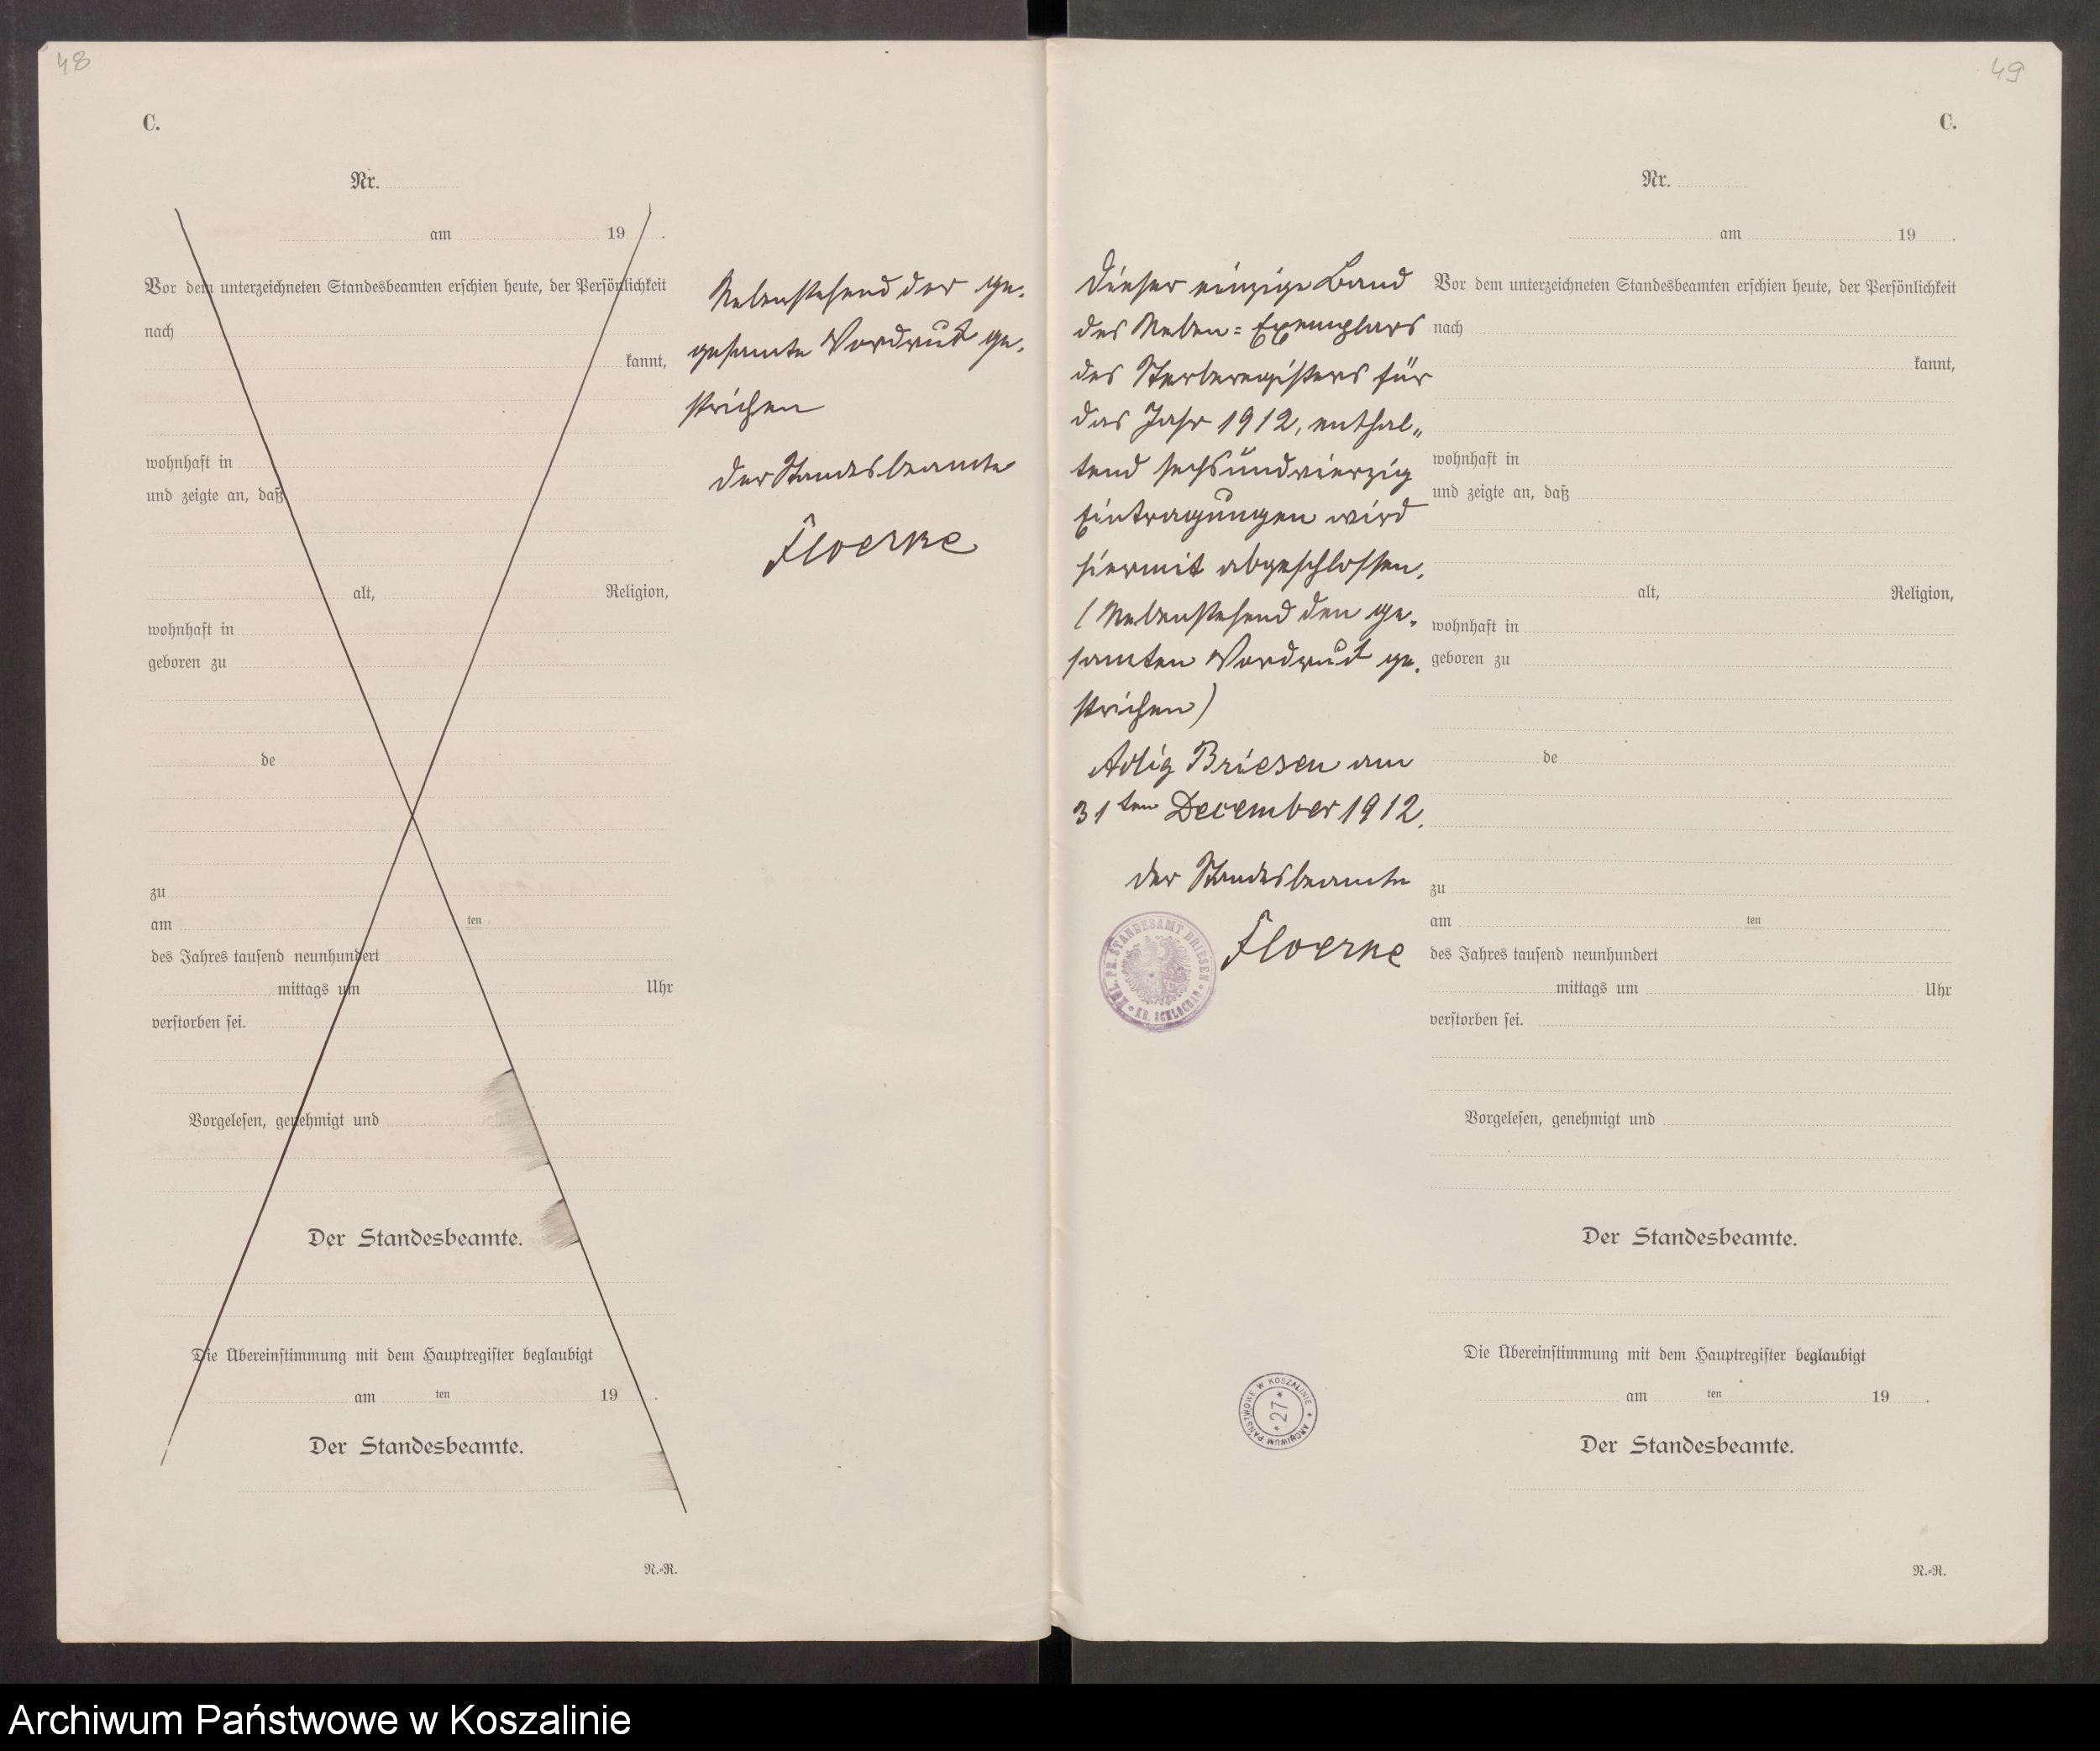 48
C.
Nr.
am 19 .
Vor dem unterzeichneten Standesbeamten erschien heute, der Persönlichkeit
nach
kannt,
wohnhaft in
und zeigte an, daß
alt, Religion,
wohnhaft in
geboren zu
de
zu
am ten
des Jahres tausend neunhundert
mittags um Uhr
verstorben sei.
Vorgelesen, genehmigt und
Der Standesbeamte.
Die Übereinstimmung mit dem Hauptregister beglaubigt
am ten 19 .
Der Standesbeamte.
N.-R.
Nebenstehend der ge-
gesamte Vordruck ge-
strichen
Der Standesbeamte
Floerke
49
C.
Dieser einzige Band
des Neben=Exemplars
des Sterberegisters für
das Jahr 1912, enthal„
tend sechsundvierzig
Eintragungen wird
hiermit abgeschlossen.
(Nebenstehend den ge-
samten Vordruck ge-
strichen)
Adlig Briesen am
31ten December 1912.
Der Standesbeamte
Floerke
KGL. PR. STANDESAMT BRIESEN
KR. SCHLOCHAU
ARCHIWUM PAŃSTWOWE W KOSZALINIE
* 27 *
Nr.
am 19 .
Vor dem unterzeichneten Standesbeamten erschien heute, der Persönlichkeit
nach
kannt,
wohnhaft in
und zeigte an, daß
alt, Religion,
wohnhaft in
geboren zu
de
zu
am ten
des Jahres tausend neunhundert
mittags um Uhr
verstorben sei.
Vorgelesen, genehmigt und
Der Standesbeamte.
Die Übereinstimmung mit dem Hauptregister beglaubigt
am ten 19 .
Der Standesbeamte.
N.-R.
Archiwum Państwowe w Koszalinie